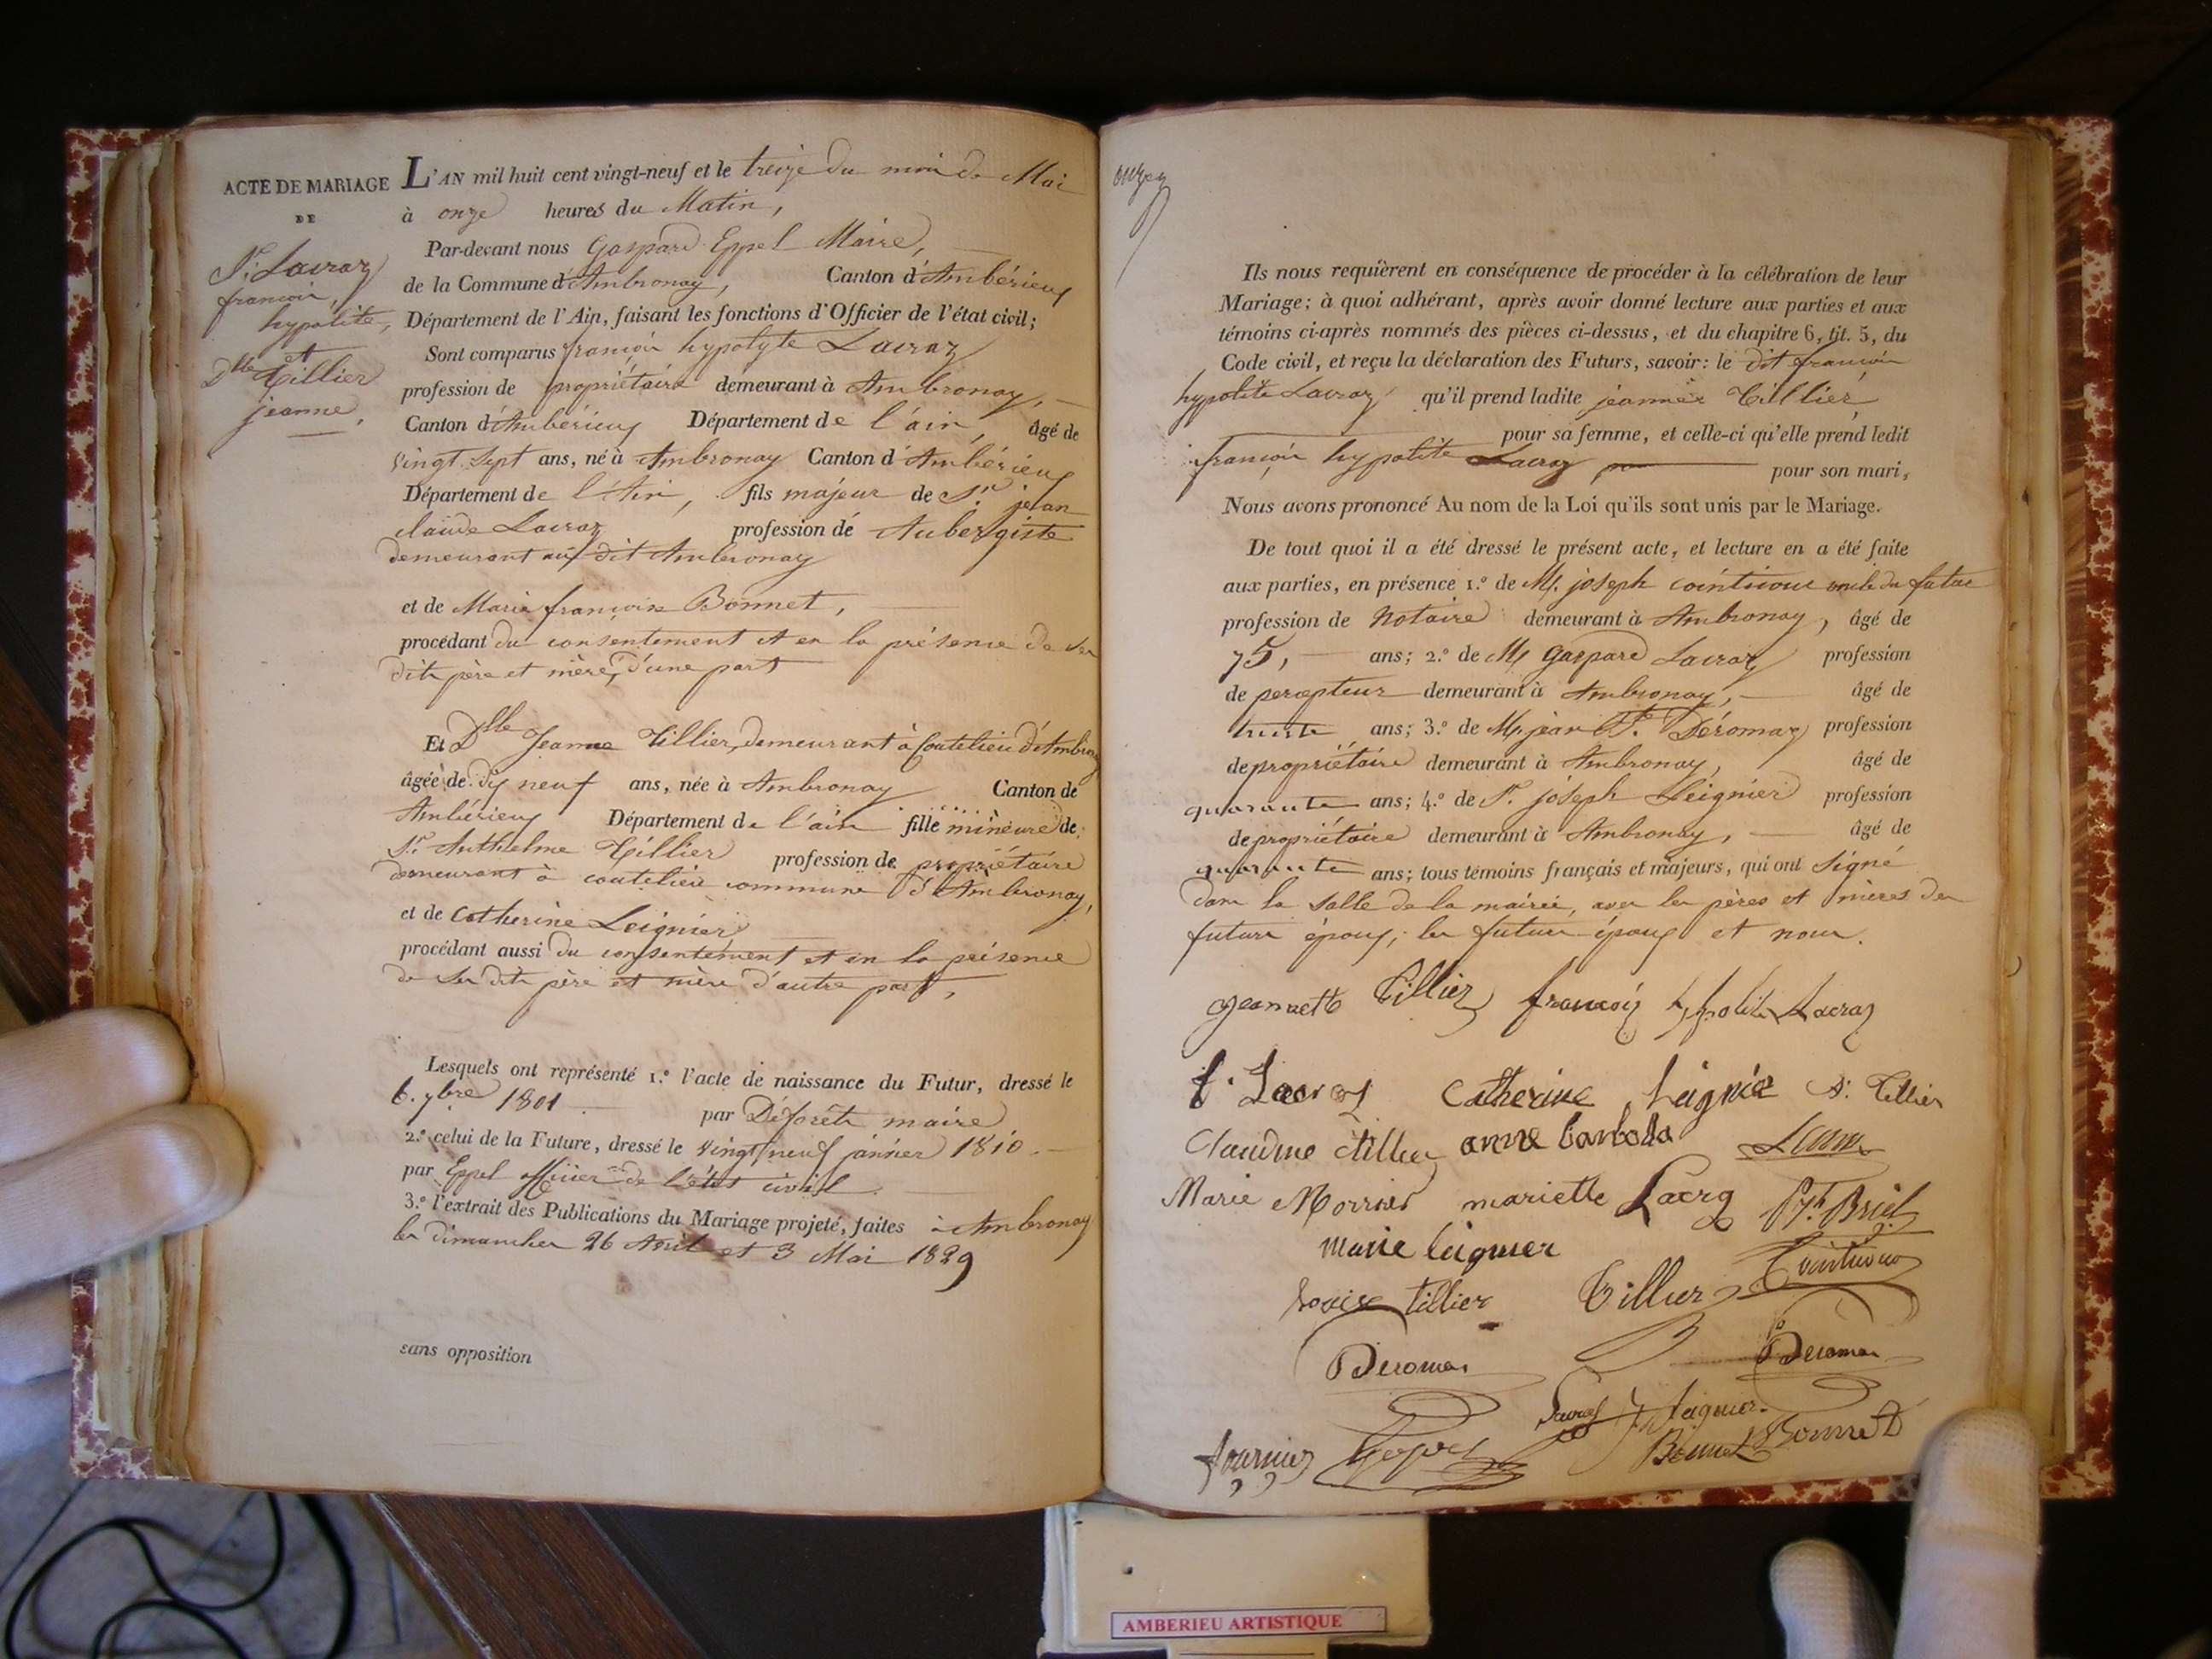 ACTE DE MARIAGE
DE
Sr. Lacraz
françois,
hypolite,
et
Dlle Tillier
jeanne,
L'AN mil huit cent vingt-neuf et le treize du moi de Mai
à onze heures du Matin,
Par-devant nous Gaspard Eppel Maire,
de la Commune d'Ambronay, Canton d'Ambérieux
Département de l'Ain, faisant les fonctions d'Officier de l'état civil;
Sont comparus françois hypolyte Lacraz
profession de propriétaire demeurant à Ambronay,
Canton d'Ambérieux Département de l'ain, âgé de
vingt sept ans, né à Ambronay Canton d'Ambérieux
Département de l'Ain, fils majeur de Sr. jean
claude Lacraz profession de Aubergiste
demeurant au dit Ambronay
et de Marie françoise Bonnet,
procédant du consentement et en la présence de ses
dits père et mère, d'une part
Et Dlle Jeanne Tillier, demeurant à Coutelieu d'Ambronay
âgée de dix neuf ans, née à Ambronay Canton de
Ambérieux Département de l'ain fille mineure de
Sr. Anthelme Tillier profession de propriétaire
demeurant à coutelieu commune d'Ambronay,
et de Catherine Leignier
procédant aussi du consentement et en la présence
de ses dits père et mère d'autre part,
Lesquels ont représenté 1.º l'acte de naissance du Futur, dressé le
6. 7bre 1801 par Déforêts maire
2.º celui de la Future, dressé le vingt neuf janvier 1810.
par Eppel officier de l'état civil
3.º l'extrait des Publications du Mariage projeté, faites à Ambronay
les dimanches 26 Avril et 3 Mai 1829
sans opposition
Ils nous requièrent en conséquence de procéder à la célébration de leur
Mariage; à quoi adhérant, après avoir donné lecture aux parties et aux
témoins ci-après nommés des pièces ci-dessus, et du chapitre 6, tit. 5, du
Code civil, et reçu la déclaration des Futurs, savoir: le dit françois
hypolite Lacraz qu'il prend ladite jeanne Tillier
pour sa femme, et celle-ci qu'elle prend ledit
françois hypolite Lacraz pour son mari,
Nous avons prononcé Au nom de la Loi qu'ils sont unis par le Mariage.
De tout quoi il a été dressé le présent acte, et lecture en a été faite
aux parties, en présence 1.º de Mr. joseph cointicour oncle du futur
profession de Notaire demeurant à Ambronay, âgé de
75, ans; 2.º de Mr Gaspard Lacraz profession
de percepteur demeurant à Ambronay, âgé de
trente ans; 3.º de Mr. jean Déromas profession
de propriétaire demeurant à Ambronay, âgé de
quarante ans; 4.º de Sr. joseph Leignier profession
de propriétaire demeurant à Ambronay, âgé de
quarante ans; tous témoins français et majeurs, qui ont signé
dans la salle de la mairie, avec les pères et mères des
futurs époux, les futurs époux et nous.
jeannette Tillier françois hypolite Lacraz
Catherine Leignier Tillier
Claudine Tillier anne
Marie mariette
marie leignier
Louise Tillier Tillier
Deromas Deromas
Leignier
fournier Bonnet
AMBERIEU ARTISTIQUE